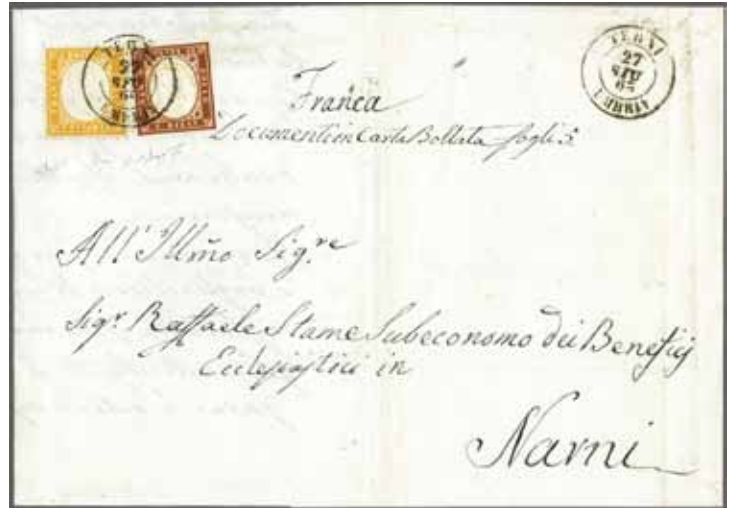 TERNI
27
UMBRIA
Franca
Documenti in Carta Bollata fogli 5
All' Illmo Sig.re
Sigr. Raffaele Stame Subeconomo dei Beneficj
Ecclesiastici in
Narni